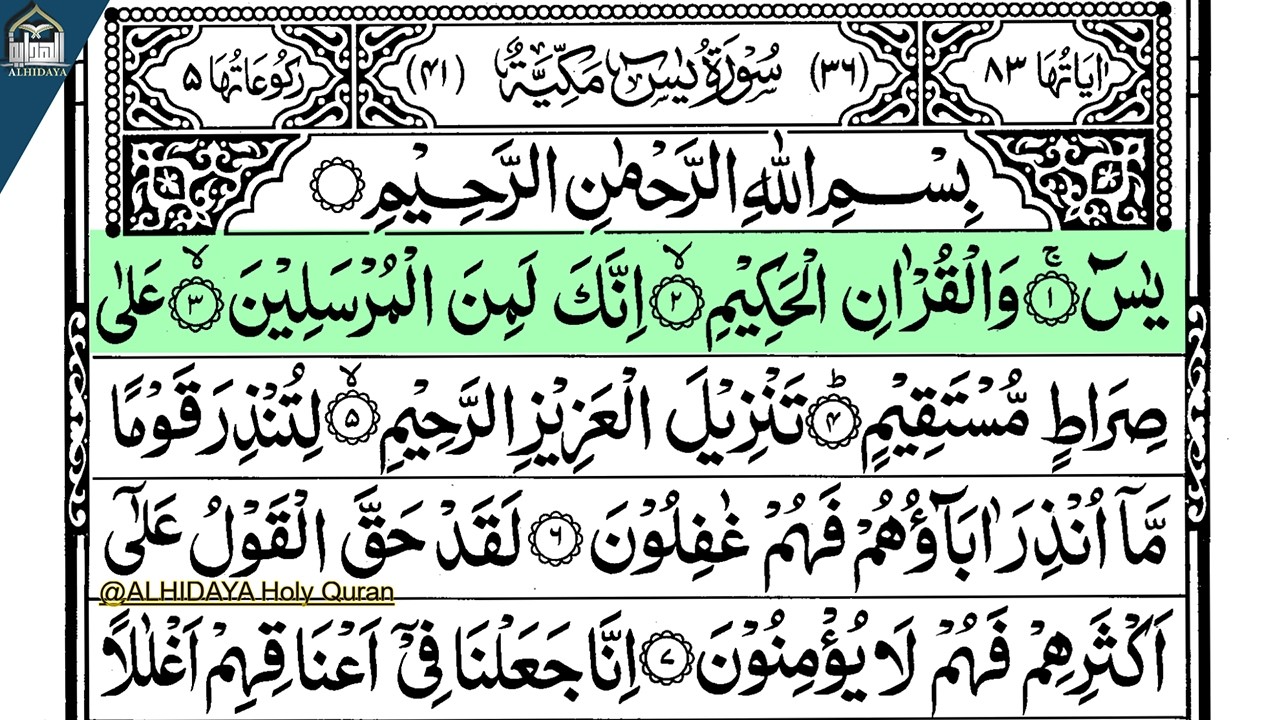 الهداية
ALHIDAYA
اٰيَاتُهَا ٨٣ (٣٦) سُوْرَةُ يٰسٓ مَكِّيَّةٌ (٤١) رُكُوْعَاتُهَا ٥
بِسْمِ اللّٰهِ الرَّحْمٰنِ الرَّحِيْمِ
يٰسٓ ۚ‏﴿١﴾ وَالْقُرْاٰنِ الْحَكِيْمِ ۙ‏﴿٢﴾ اِنَّكَ لَمِنَ الْمُرْسَلِيْنَ ۙ‏﴿٣﴾ عَلٰى
صِرَاطٍ مُّسْتَقِيْمٍ ؕ‏﴿٤﴾ تَنْزِيْلَ الْعَزِيْزِ الرَّحِيْمِ ۙ‏﴿٥﴾ لِتُنْذِرَ قَوْمًا
مَّاۤ اُنْذِرَ اٰبَآؤُهُمْ فَهُمْ غٰفِلُوْنَ ﴿٦﴾ لَقَدْ حَقَّ الْقَوْلُ عَلٰۤى
@ALHIDAYA Holy Quran
اَكْثَرِهِمْ فَهُمْ لَا يُؤْمِنُوْنَ ﴿٧﴾ اِنَّا جَعَلْنَا فِىْۤ اَعْنَاقِهِمْ اَغْلٰلًا